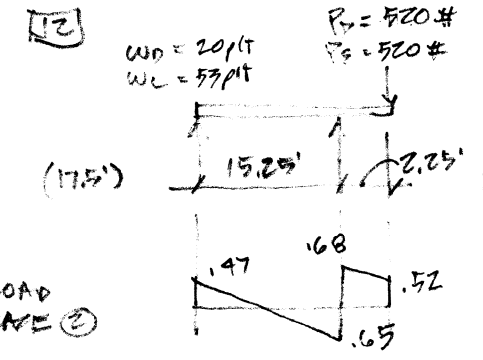 12
PD = 520 #
PS = 520 #
WD = 20plf
WL = 53plf
(17.5')
15.25'
2.25'
.47
.68
.52
.65
OAD
②